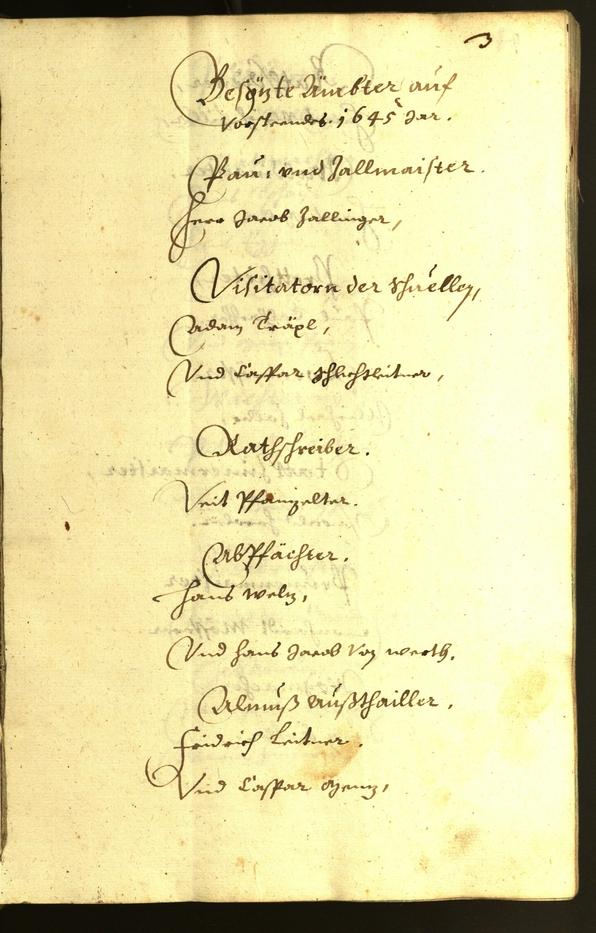 3
Besözte Ämbter auf
vorsteendes 1645 Jar.
Pau: vnd Zallmaister.
Herr Jacob Zallinger,
Visitatorn der Schuellen,
Adam Träxl,
Vnd Caspar Schlechtleitner,
Rathschreiber.
Veit Pfanzelter.
AbPfächter.
Hans Welz,
Vnd Hans Jacob von Werth.
Almuß Außthailler.
Fridrich Leitner.
Vnd Caspar